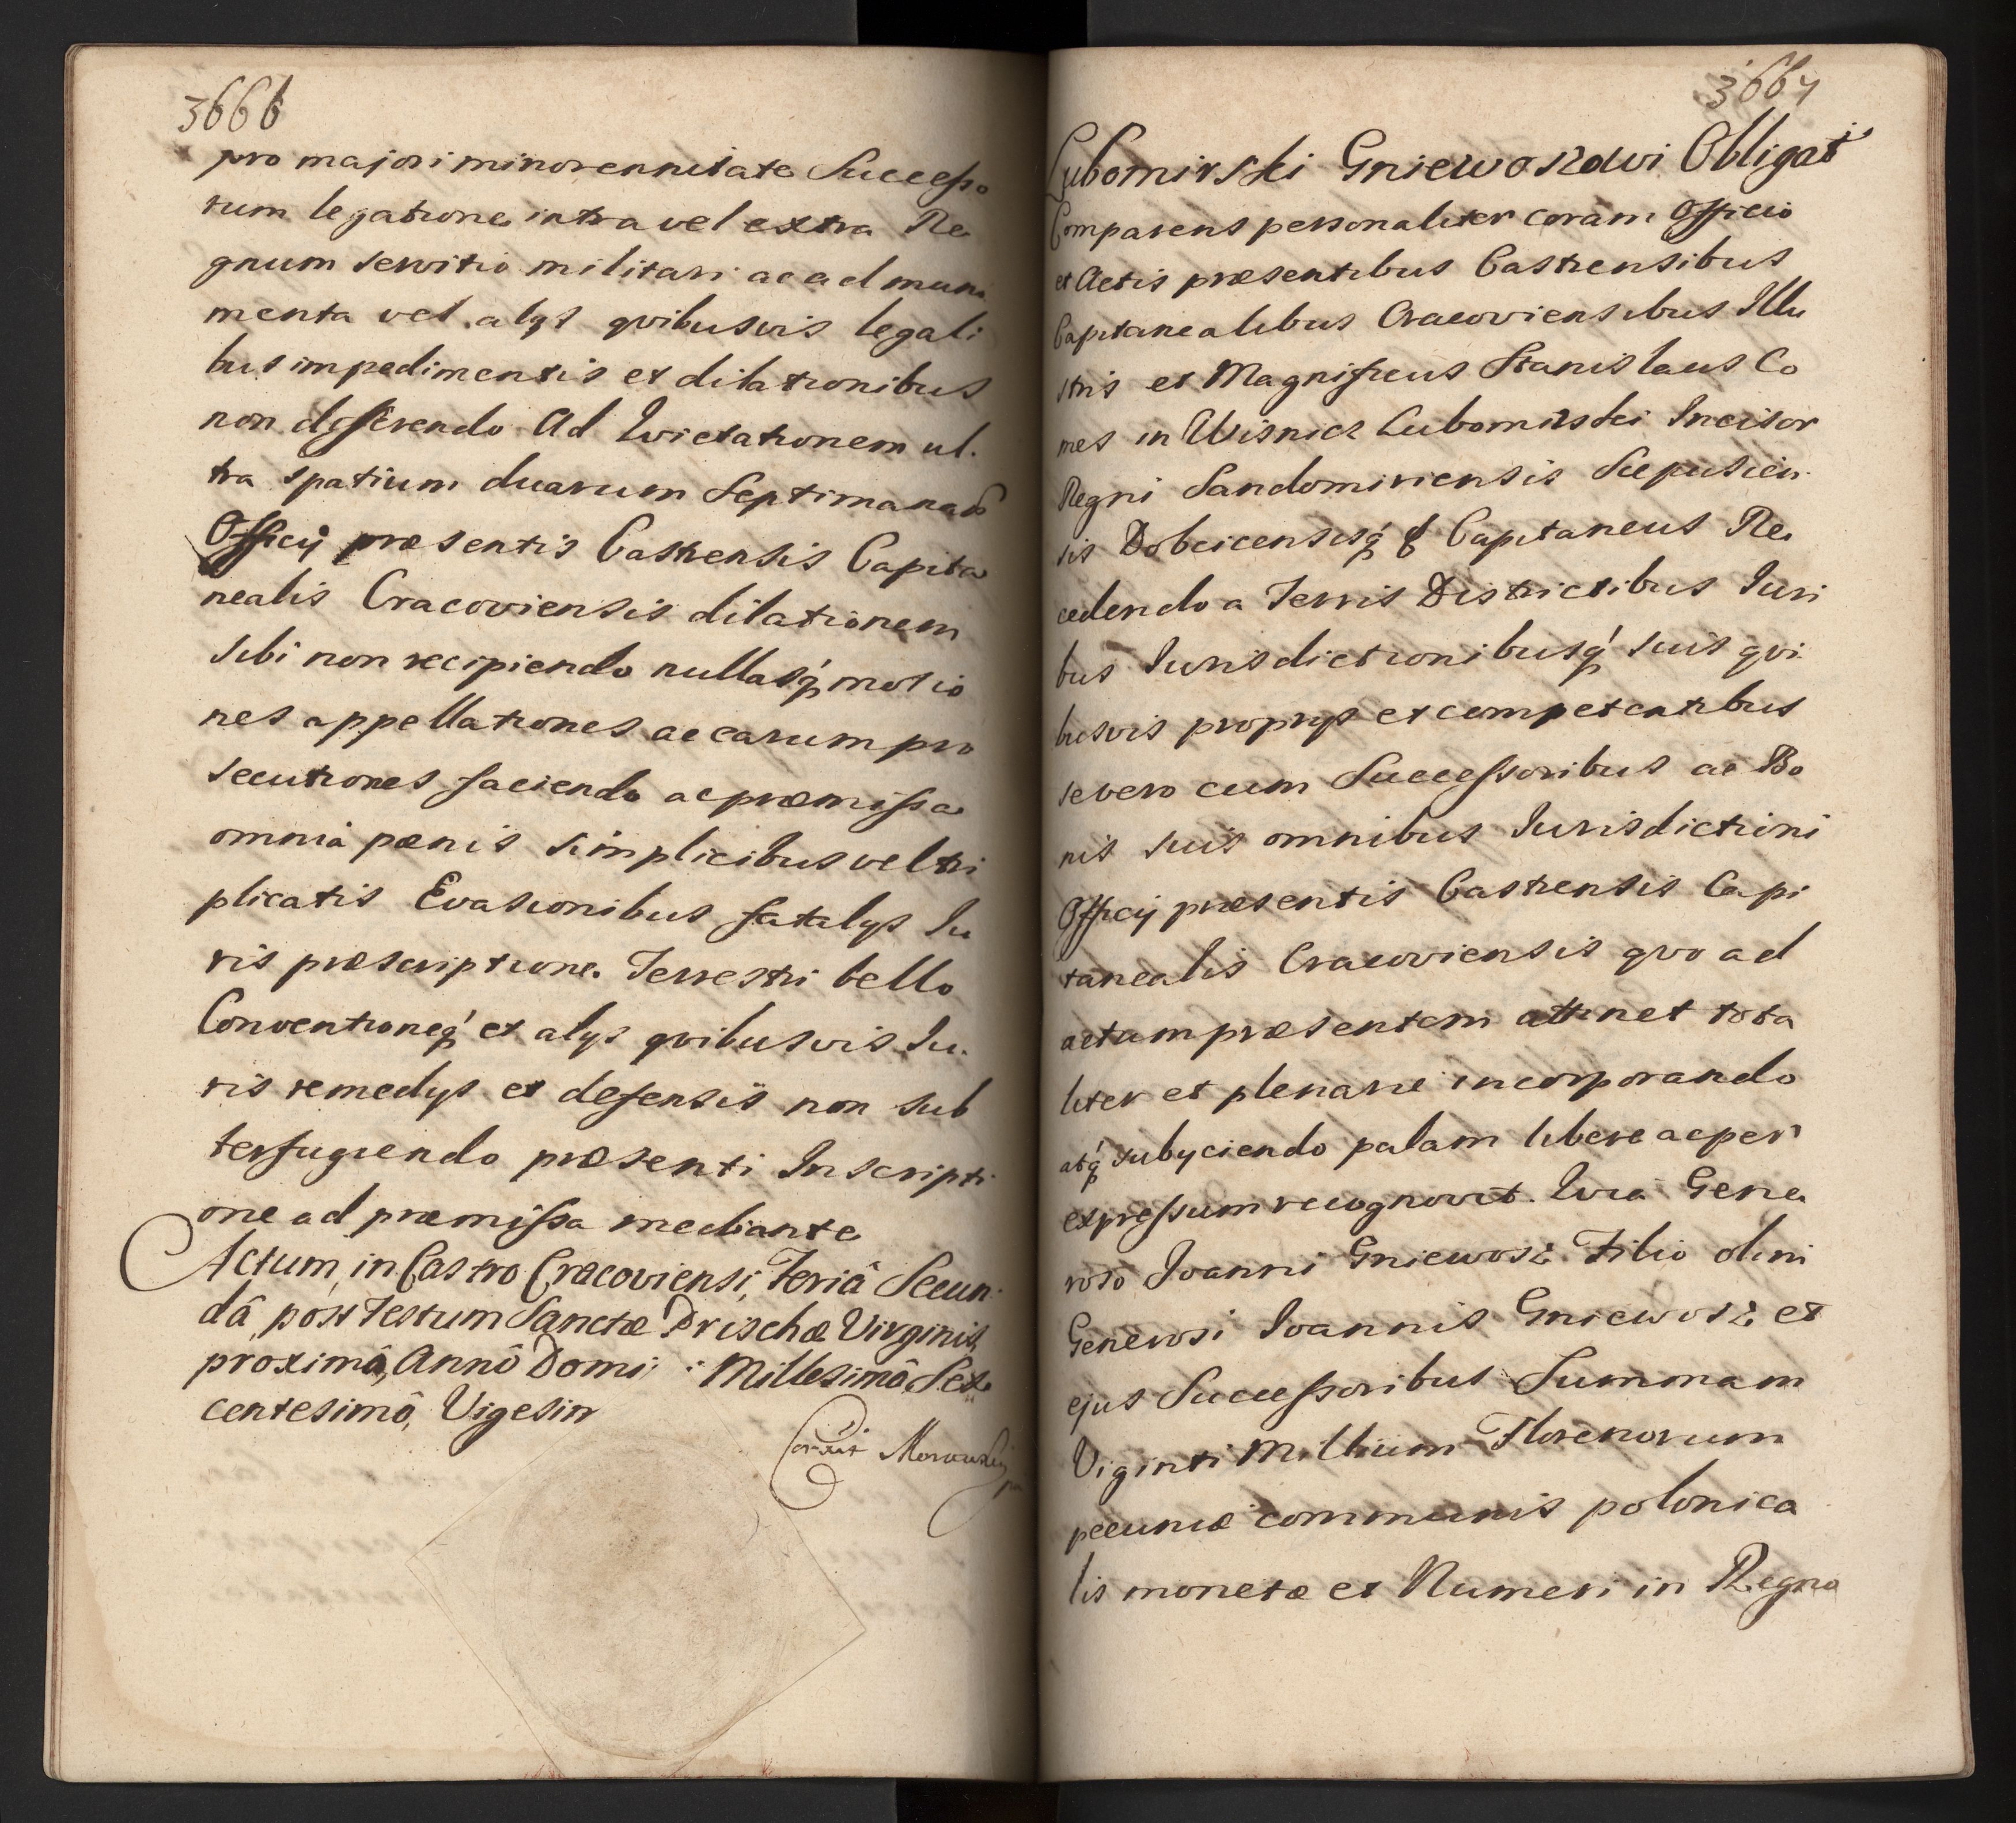 3666
pro majori minorennitate Successo
rum legatione intra vel extra Re
gnum servitio militari ac ad muni
menta vel alys qvibusvis legali
bus impedimentis et dilationibus
non differendo Ad Evictationem ul.
tra spatium duarum Septimanar
Officij præsentis Castrensis Capita
nealis Cracoviensis dilationem
sibi non recipiendo nullasq́ motio
nes appellationes ac earum pro
secutiones faciendo ac præmissa
omnia pœnis simplicibus vel tri
plicatis Evasionibus fatalys Iu
ris præscriptione Terrestri bello
Conventioneq́ et alys qvibusvis Iu.
ris remedys et defensis non sub
terfugiendo præsenti Inscripti
one ad præmissa mediante
Actum in Castro Cracoviensi, Feriâ Secun
dâ post Festum Sanctæ Prischæ Virginis
proximâ, Annô Domi: Millesimô Sex
centesimô, Vigesim
3667
Lubomirski Gniewoszowi Obligat
Comparens personaliter coram Officio
et Actis præsentibus Castrensibus
Capitanealibus Cracoviensibus Illu
stris et Magnificus Stanislaus Co
mes in Wisnicz Lubomirski Incisor
Regni Sandomiriensis Scepusien
sis Dobcicensisq́ & Capitaneus Re
cedendo a Terris Districtibus Iuri
bus Iurisdictionibusq́ suis qvi
busvis proprys et competentibus
se vero cum Successoribus ac Bo
nis suis omnibus Iurisdictioni
Officij præsentis Castrensis Capi
tanealis Cracoviensis qvo ad
actum præsentem attinet tota
liter et plenarie incorporando
atq́ subyciendo palam libere ac per
expressum recognovit. Qvia Gene
roso Joanni Gniewosz Filio olim
Generosi Joannis Gniewosz et
ejus Successoribus Summam
Viginti Millium Florenorum
pecuniæ communis polonica
lis monetæ et Numeri in Regno